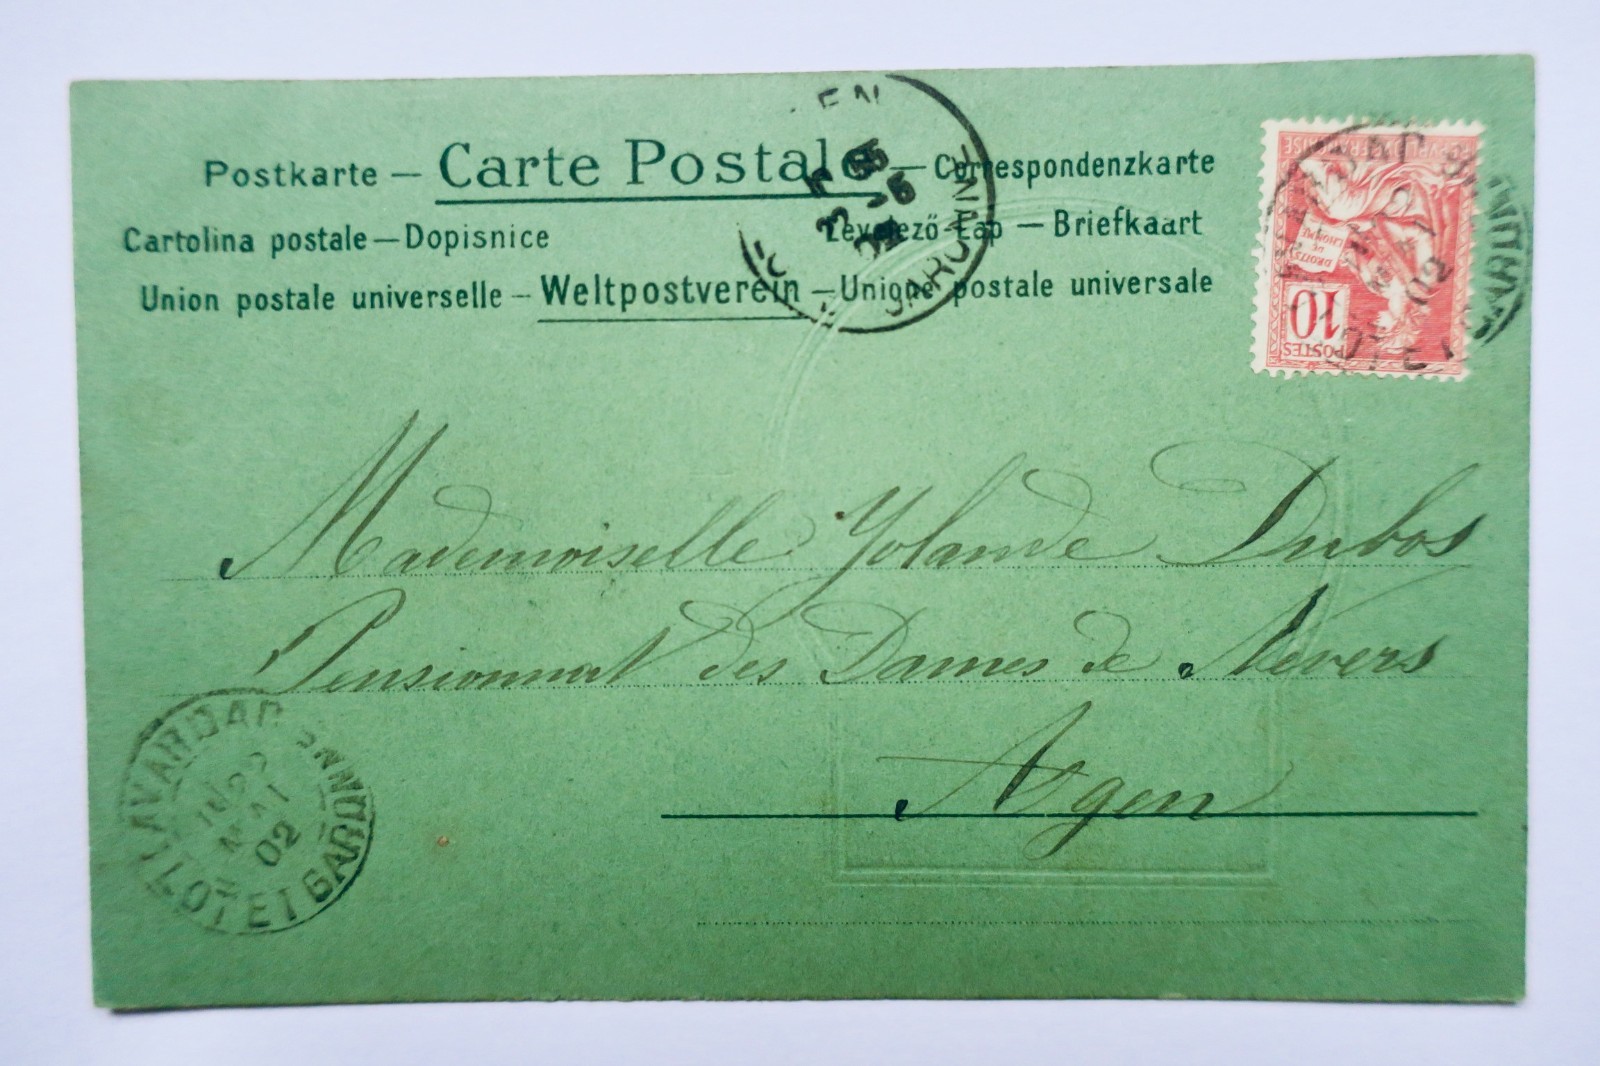 Postkarte — Carte Postale — Correspondenzkarte
Cartolina postale — Dopisnice Levelező-Lap — Briefkaart
Union postale universelle — Weltpostverein — Unione postale universale
10
POSTES
DROITS DE L'HOMME
Mademoiselle Yolande Dubos
Pensionnat des Dames de Nevers
Agen
LAVARDAC
MAI
02
LOT ET GARONNE